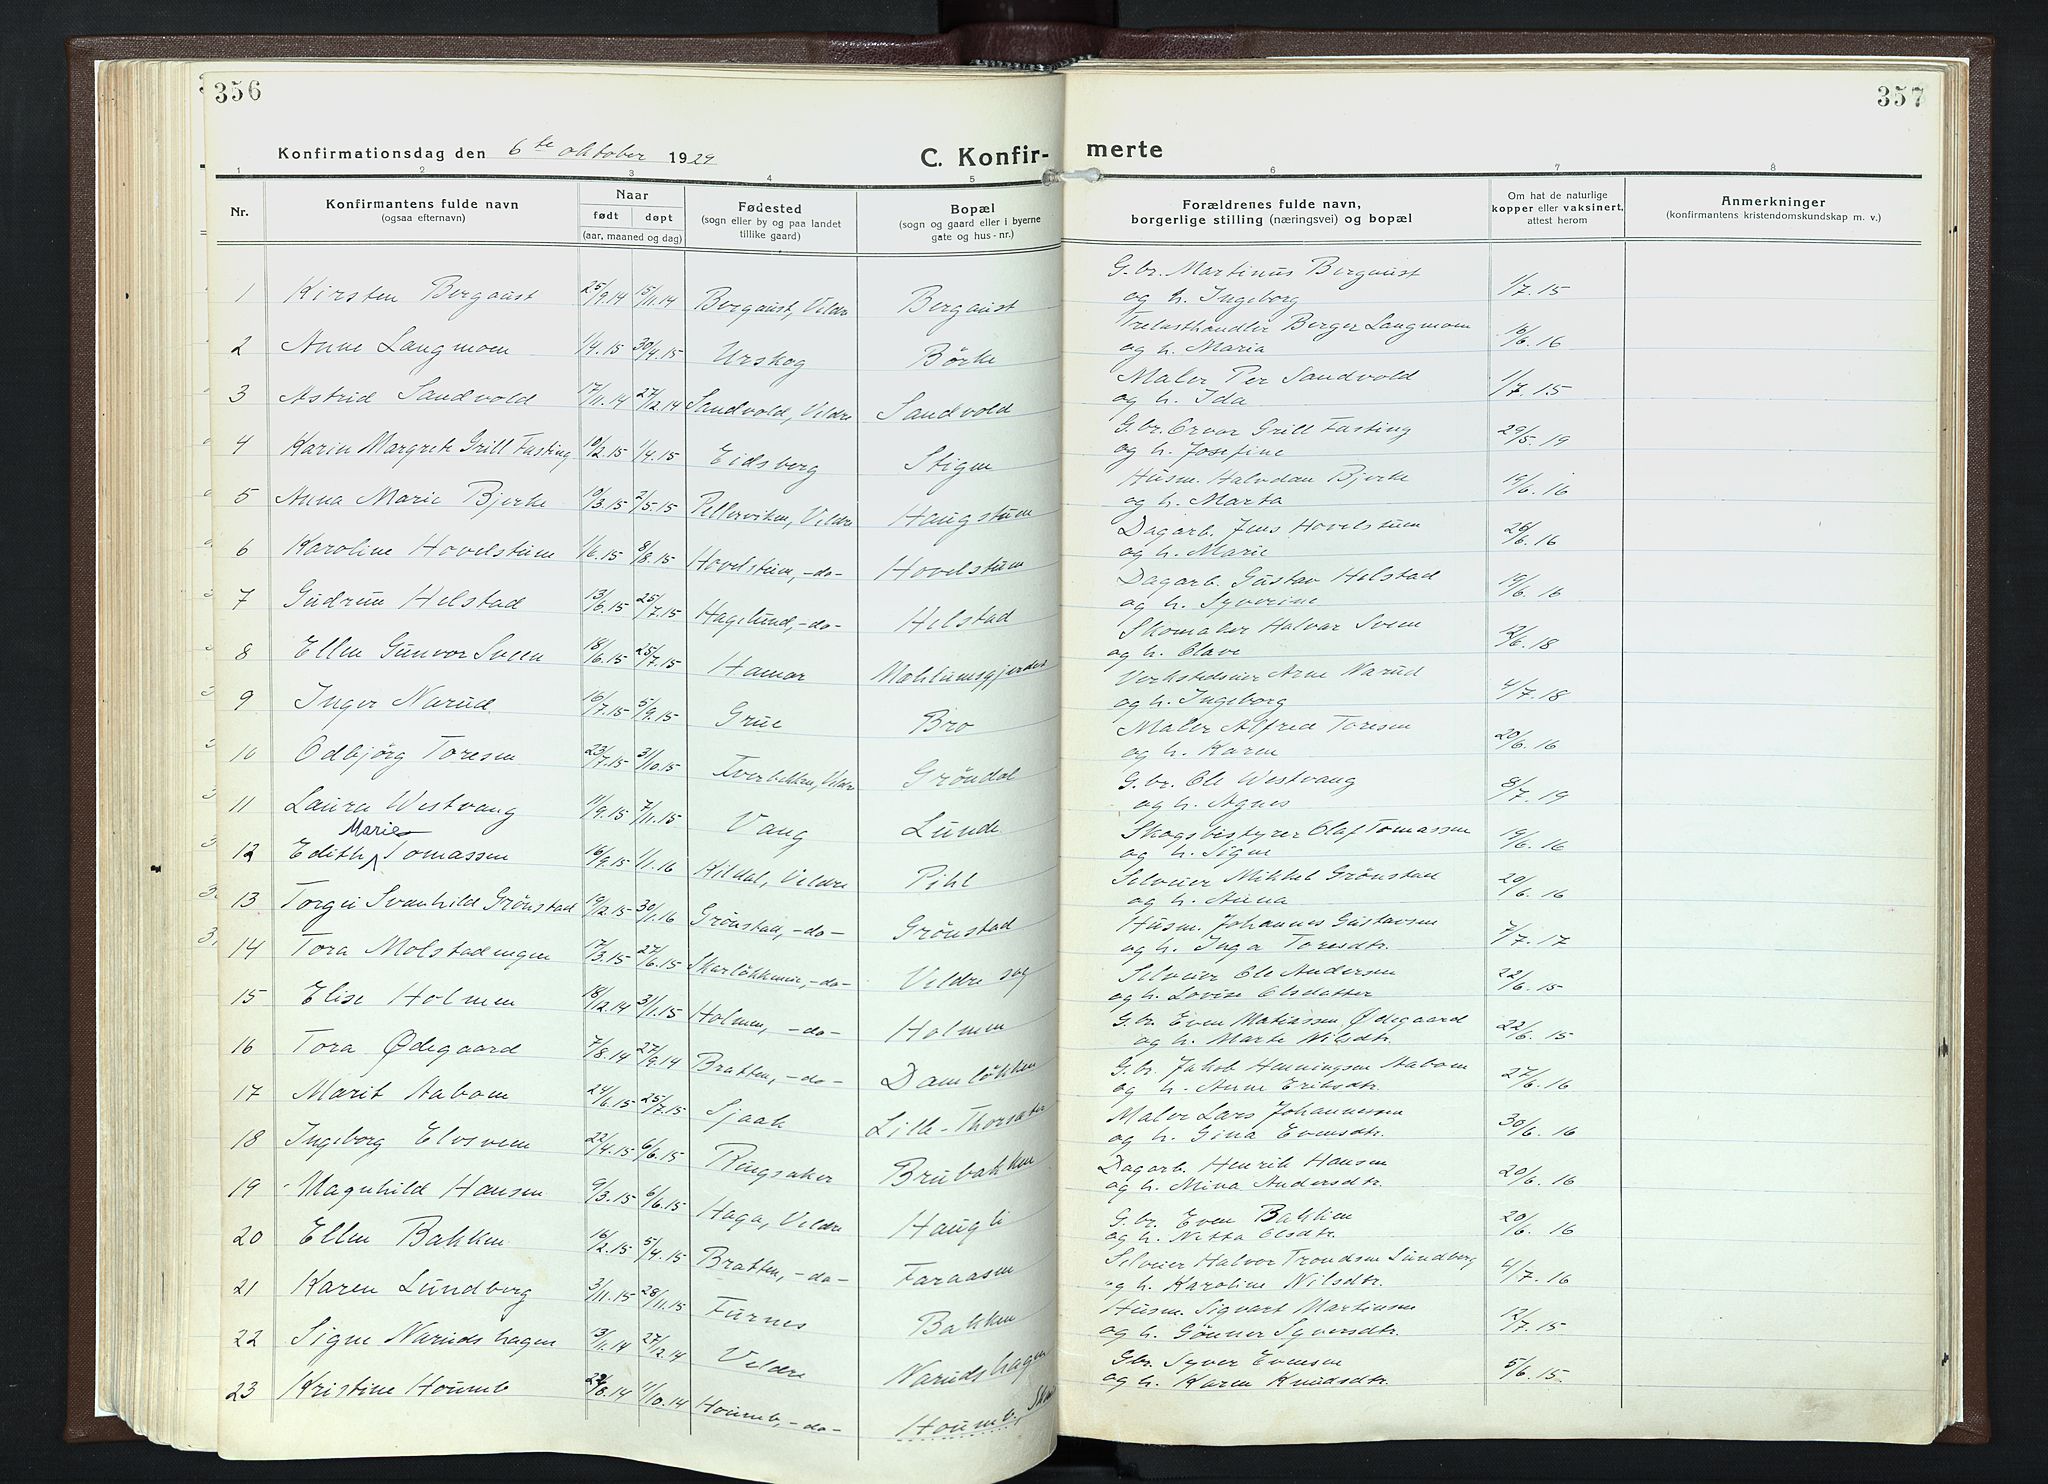 356
357
Konfirmationsdag den 6te oktober 1929
C. Konfir-
merte
1 2 3 4 5 6 7 8
Nr.
Konfirmantens fulde navn
(ogsaa efternavn)
Naar
født
døpt
(aar, maaned og dag)
Fødested
(sogn eller by og paa landet
tillike gaard)
Bopæl
(sogn og gaard eller i byerne
gate og hus-nr.)
Forældrenes fulde navn,
borgerlige stilling (næringsvei) og bopæl
Om hat de naturlige
kopper eller vaksinert,
attest herom
Anmerkninger
(konfirmantens kristendomskundskap m. v.)
1 Kirsten Bergaust 25/9.14 15/11.14 Bergaust, Veldre Bergaust G.br. Martinus Bergaust 1/7.15
og h. Ingeborg
2 Anne Langmoen 1/4.15 30/4.15 Urskog Børke Trelasthandler Berger Langmoen 16/6.16
og h. Maria
3 Astrid Sandvold 17/11.14 27/12.14 Sandvold, Veldre Sandvold Maler Per Sandvold 1/7.15
og h. Ida
4 Karin Margrete Grill Fasting 10/2.15 1/4.15 Eidsberg Stigen G.br. Orvar Grill Fasting 29/5.19
og h. Josefine
5 Anna Marie Bjerke 19/3.15 2/5.15 Pellerviken, Veldre Haugstuen Husm. Halvdan Bjerke 19/6.16
og h. Marta
6 Karoline Hovelstuen 1/6.15 8/8.15 Hovelstuen, -do- Hovelstuen Dagarb. Jens Hovelstuen 26/6.16
og h. Marie
7 Gudrun Helstad 13/6.15 25/7.15 Hagelund, -do- Helstad Dagarb. Gustav Helstad 19/6.16
og h. Syverine
8 Ellen Gunvor Sveen 18/6.15 25/7.15 Hamar Mæhlumsgjerdet Skomaker Halvar Sveen 12/6.18
og h. Olave
9 Inger Narud 16/7.15 5/9.15 Grue Bro Verkstedeier Arne Narud 4/7.18
og h. Ingeborg
10 Odbjørg Toresen 23/7.15 31/10.15 Tverbekken, Veldre Grøndal Maler Alfred Toresen 20/6.16
og h. Karen
11 Laura Westvang 11/9.15 7/11.15 Vang Lunde G.br. Ole Westvang 8/7.19
og h. Agnes
Marie
12 Edith Tomassen 16/9.15 1/1.16 Kildal, Veldre Pihl Skogbestyrer Olaf Tomassen 19/6.16
og h. Signe
13 Torgei Svanhild Grønstad 19/12.15 30/1.16 Grønstad, -do- Grønstad Selveier Mikkel Grønstad 20/6.16
og h. Anna
14 Tora Molstadengen 17/3.15 27/6.15 Skarløkkene, -do- Veldre sog Husm. Johannes Gustavsen 7/7.17
og h. Inga Toresdtr.
15 Elise Holmen 18/12.14 31/1.15 Holmen, -do- Holmen Selveier Ole Andersen 22/6.15
og h. Lovise Olsdatter
16 Tora Ødegaard 7/8.14 27/9.14 Bratten, -do- Damløkken G.br. Even Matiassen Ødegaard 22/6.15
og h. Marte Nilsdtr.
17 Marit Aaboen 24/6.15 25/7.15 Sjaak Lille-Thorsæter G.br. Jakob Henningsen Aaboen 27/6.16
og h. Anne Eriksdtr.
18 Ingeborg Elvsveen 22/4.15 6/6.15 Ringsaker Brubakken Maler Lars Johannessen 30/6.16
og h. Gina Evensdtr.
19 Magnhild Hansen 9/3.15 6/6.15 Haga, Veldre Haugli Dagarb. Henrik Hansen 20/6.16
og h. Mina Andersdtr.
20 Ellen Bakken 16/2.15 5/4.15 Bratten, -do- Faraasen G.br. Even Bakken 20/6.16
og h. Netta Olsdtr.
21 Karen Lundberg 3/11.15 28/11.15 Furnes Bakken Selveier Halvor Trondsen Lundberg 4/7.16
og h. Karoline Nilsdtr.
22 Signe Narudshagen 13/1.14 27/12.14 Veldre Narudshagen Husm. Sigvart Martinsen 12/7.15
og h. Gunner Syversdtr.
23 Kristine Houmb 22/8.14 4/10.14 Houmb, -do- Houmb, G.br. Syver Evensen 5/6.15.
og h. Karen Knudsdtr.